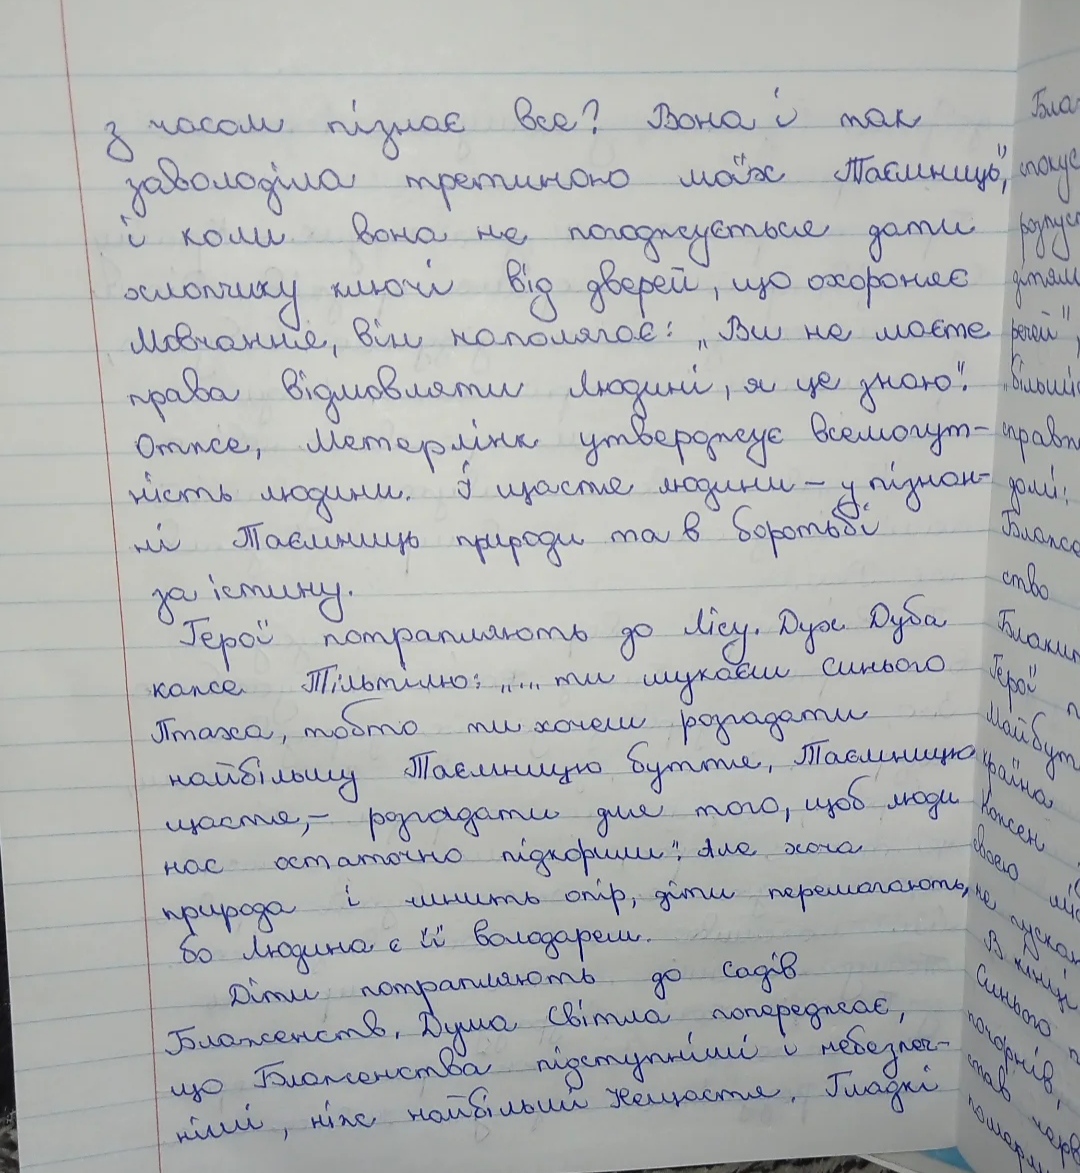 з часом пізнає все? Вона і так
заволоділа третиною моїх Таємниць",
і коли вона не погоджується дати
хлопчику ключі від дверей, що охороняє
Мовчання, він наполягає: „Ви не маєте
права відмовляти Людині, я це знаю".
Отже, Метерлінк утверджує всемогут-
ність людини. І щастя людини – у пізнан-
ні Таємниць природи та в боротьбі
за істину.
Герої потрапляють до Лісу. Дух Дуба
каже Тільтілю: „... ти шукаєш синього
Птаха, тобто ти хочеш розгадати
найбільшу Таємницю буття, Таємницю
щастя, – розгадати для того, щоб люди
нас остаточно підкорили". Але хоча
природа і чинить опір, діти перемагають,
бо Людина є її володарем.
Діти потрапляють до садів
Блаженств. Душа Світла попереджає,
що Блаженства підступніші і небезпеч-
ніші, ніж найбільші Нещастя. Гладкі
Бла
спокус
розпус
дітям
речей"
„Більшіс
справж
домі:
Блаже
ство
Блакит
Герої п
Майбут
країна
Кожен
своєю
не пускаю
В кінці
Синього п
почорнів,
став черв
помер